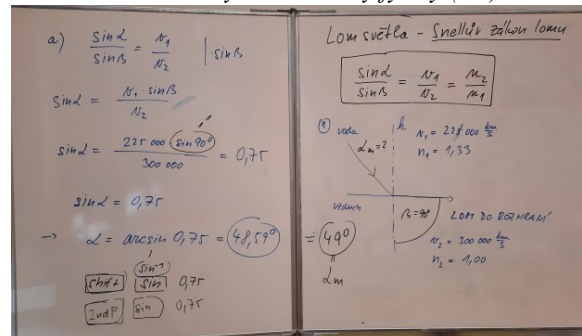 a) sinα / sinβ = v₁ / v₂ | · sinβ
sinα = v₁ · sinβ / v₂
sinα = 225 000 · sin 90° / 300 000 = 0,75
sinα = 0,75
→ α = arcsin 0,75 = 48,59° ≐ 49°
αm
sin⁻¹
shift sin 0,75
2ndF sin 0,75
Lom světla - Snellův zákon lomu
sinα / sinβ = v₁ / v₂ = n₂ / n₁
① voda
k
v₁ = 225 000 km/s
n₁ = 1,33
αm = ?
vzduch
β = 90°
LOM DO ROZHRANÍ
v₂ = 300 000 km/s
n₂ = 1,00